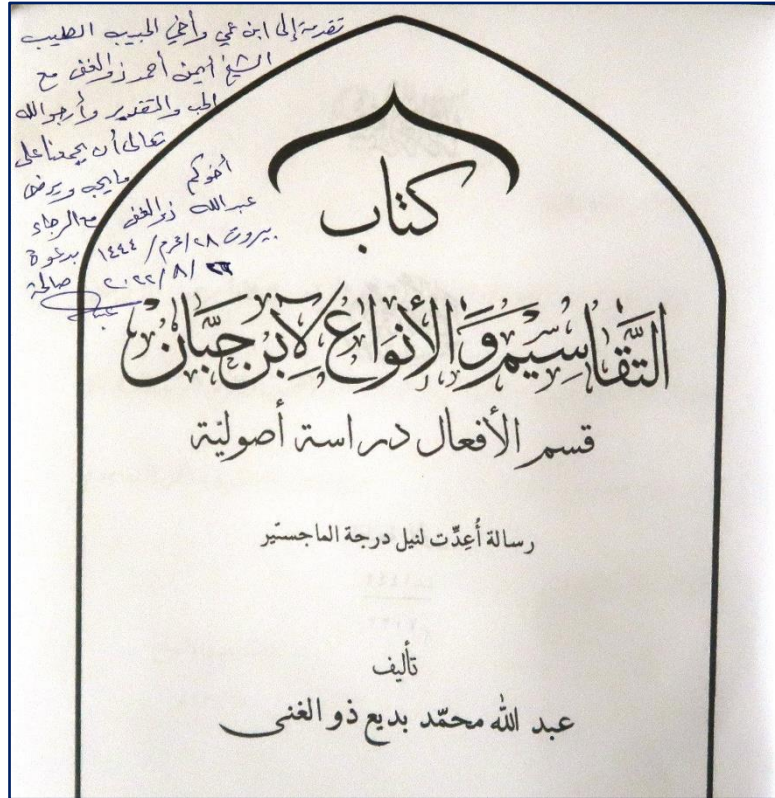 تقدمة إلى ابن عمي وأخي الحبيب الطيب
الشيخ أيمن أحمد ذو الغنى مع
الحب والتقدير وأرجو الله
تعالى أن يجمعنا على
ما يحبه ويرضى
أخوكم
عبد الله ذو الغنى مع الرجاء
بيروت ٢٨/محرم/١٤٤٤ بدعوة
/٨/٢٠٢٢ صالحة
كتاب
التَّقَاسِيم وَالأَنوَاع لابن حِبَّان
قسم الأفعال دراسة أصوليّة
رسالة أُعِدَّت لنيل درجة الماجستير
تأليف
عبد الله محمّد بديع ذو الغنى